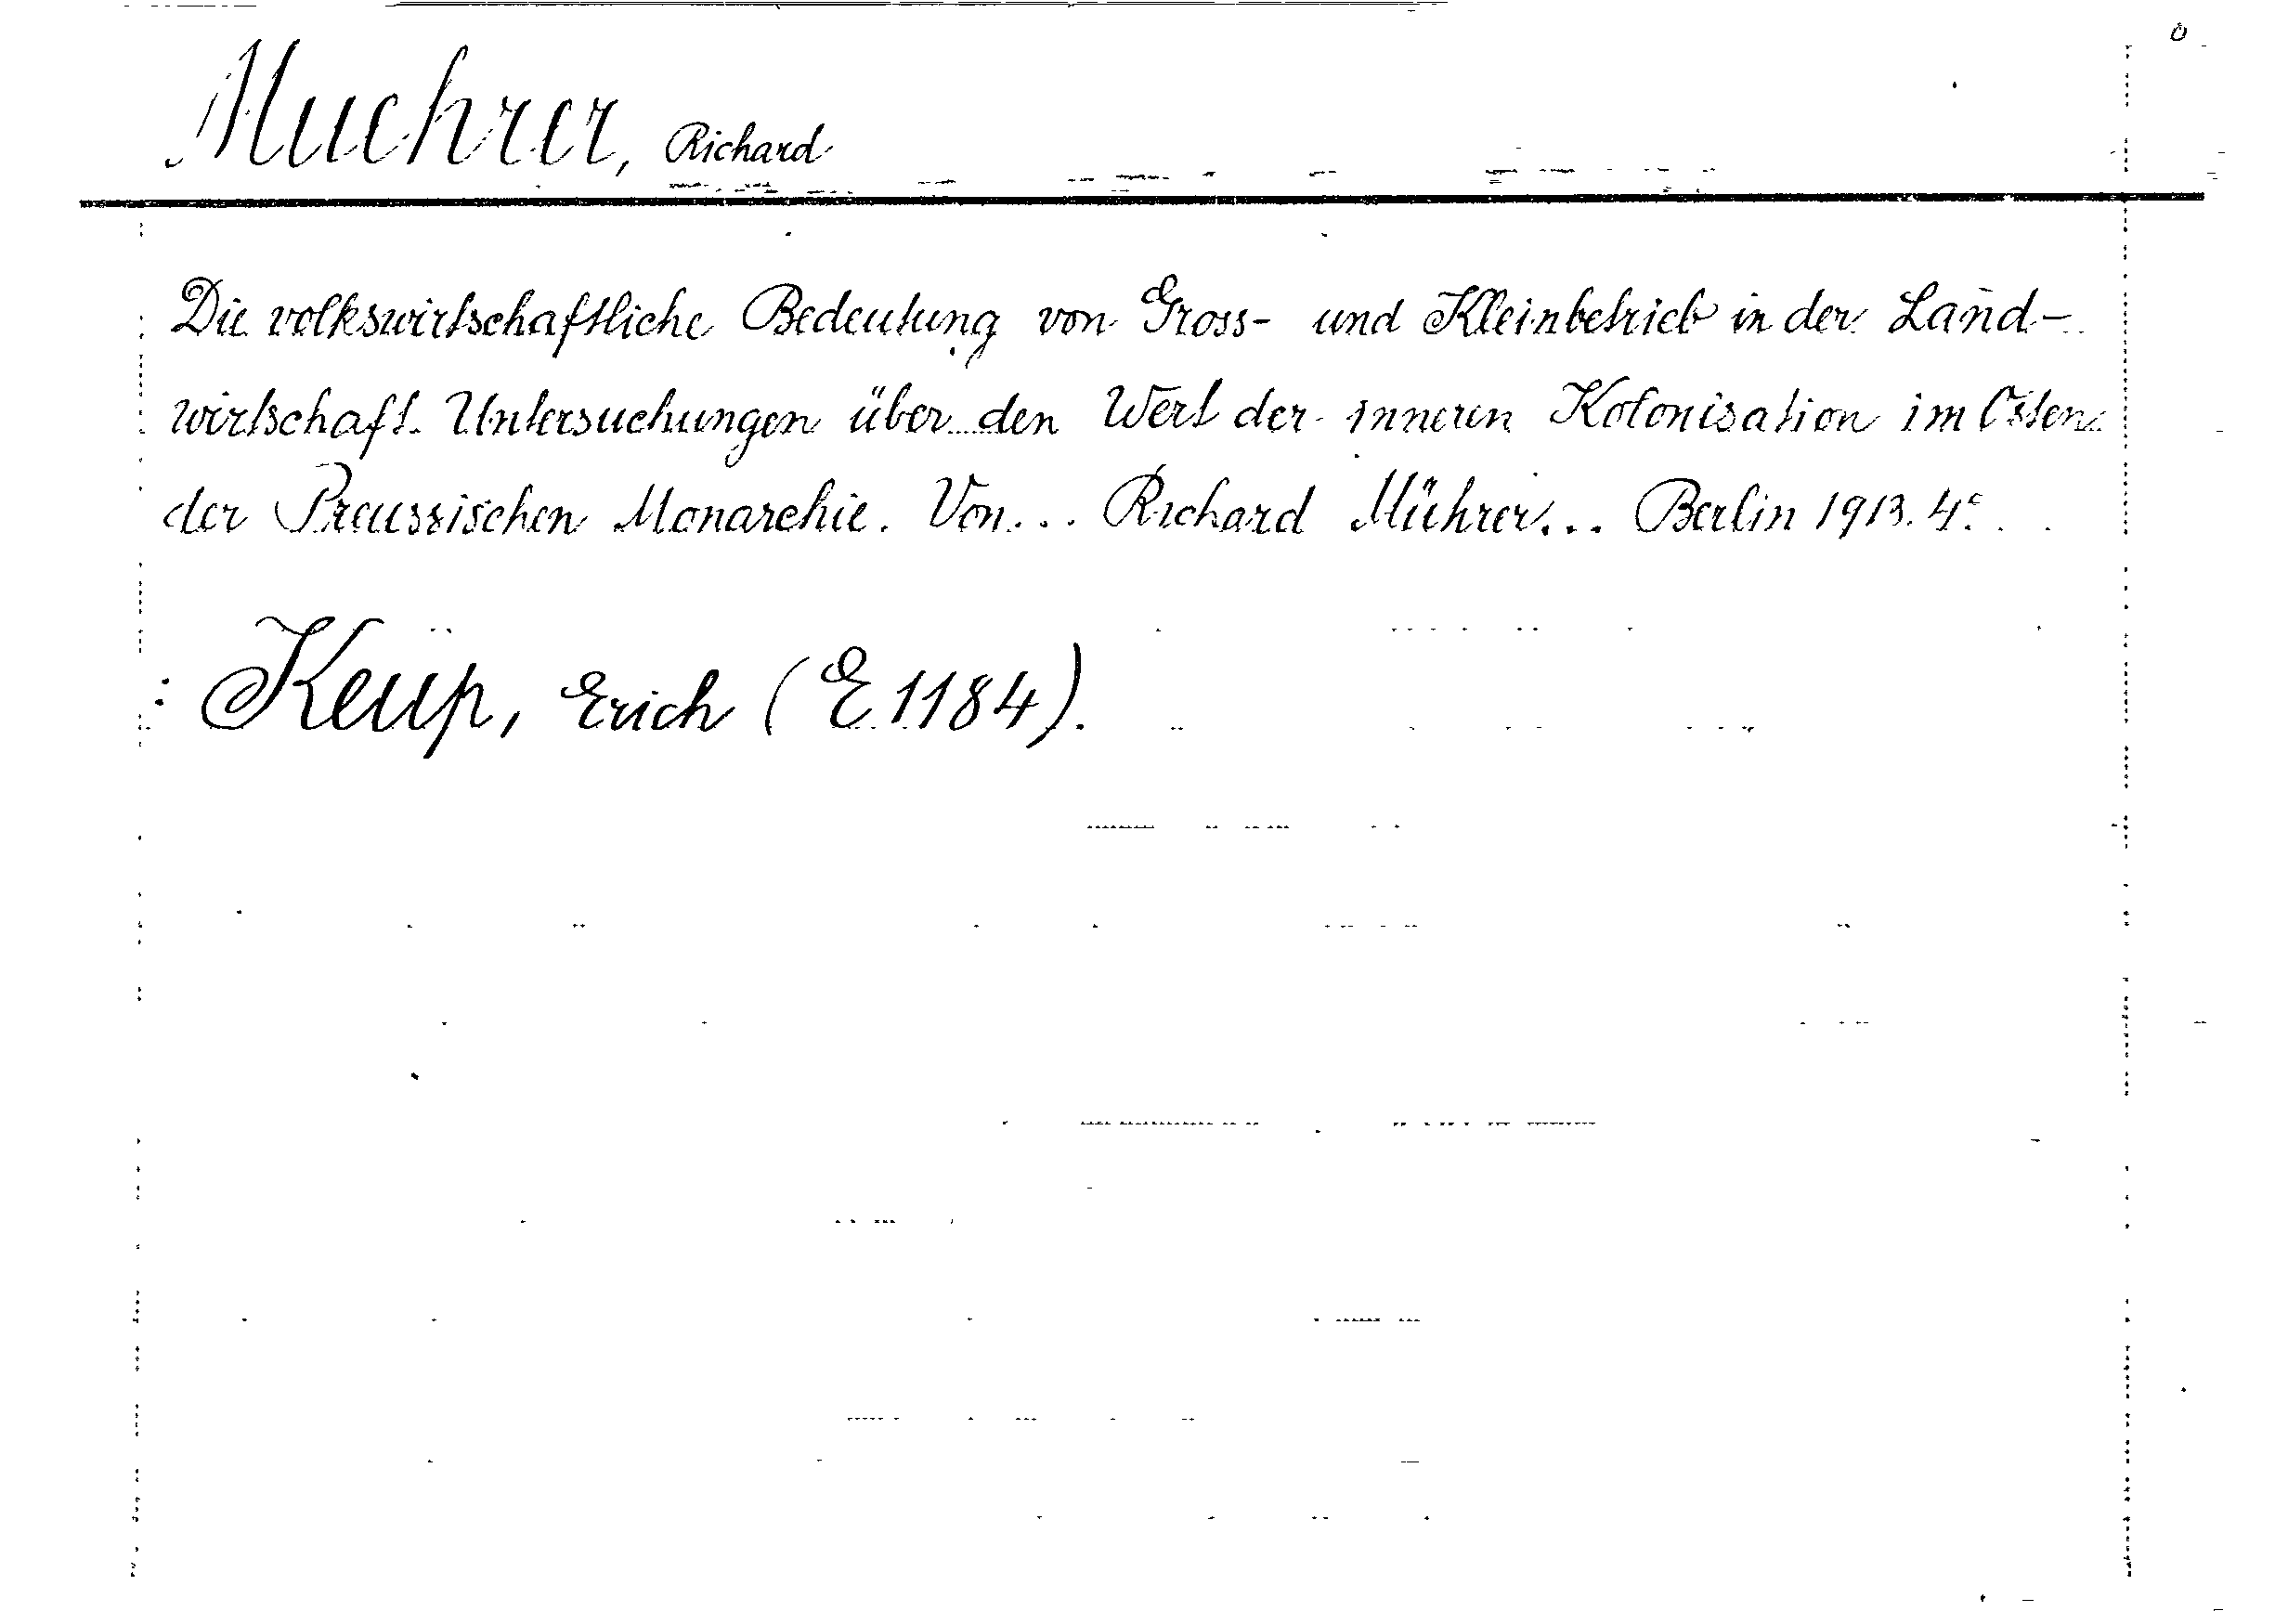 Muehrer, Richard
Die volkswirtschaftliche Bedeutung von Gross- und Kleinbetrieb in der Land-
wirtschaft. Untersuchungen über den Wert der inneren Kolonisation im Osten
der Preussischen Monarchie. Von... Richard Mührer... Berlin 1913. 4°.
: Keup, Erich (E 1184).